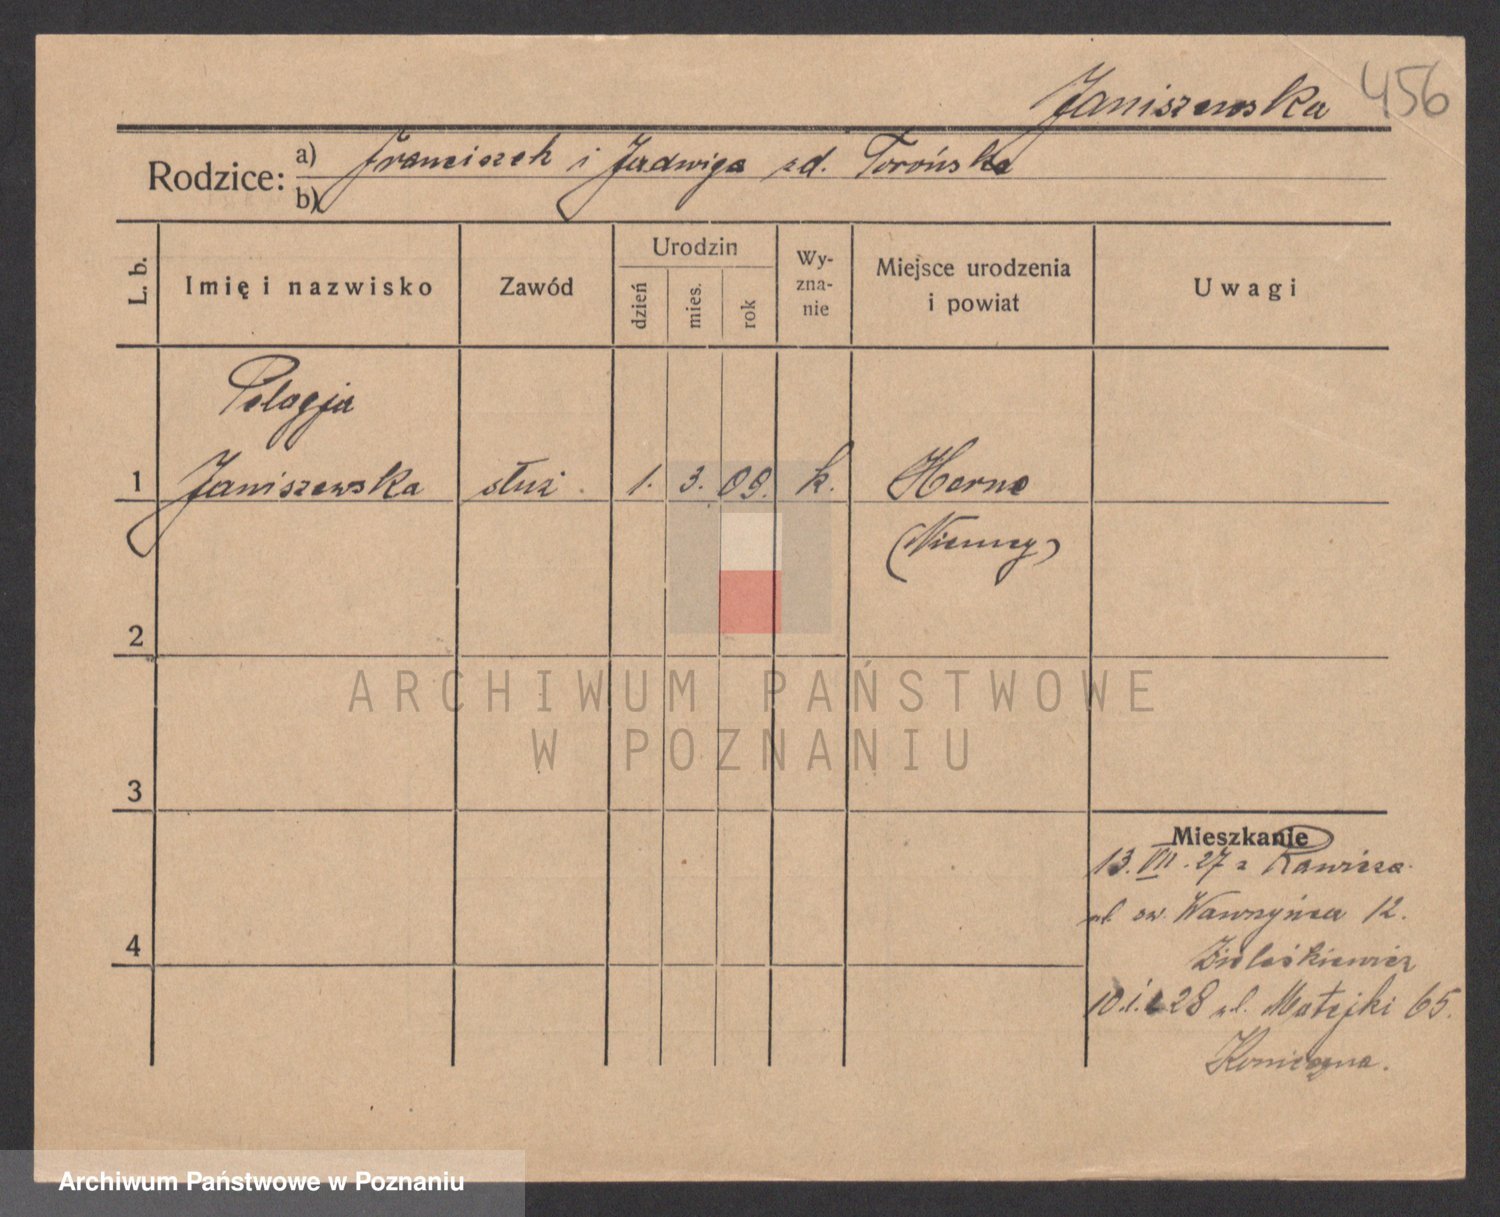 Janiszewska 456
Rodzice: a) Franciszek i Jadwiga zd. Torońska
b)
L. b. Imię i nazwisko Zawód Urodzin dzień mies. rok Wy-zna-nie Miejsce urodzenia i powiat Uwagi
Pelagja
1 Janiszewska służ. 1. 3. 09. k. Horne
(Niemcy)
2
ARCHIWUM PAŃSTWOWE
W POZNANIU
3
Mieszkanie
13.VII.27 z Rawicza
ul. św. Wawrzyńca 12.
4
10.I.28 ul. Matejki 65.
Konieczna.
Archiwum Państwowe w Poznaniu